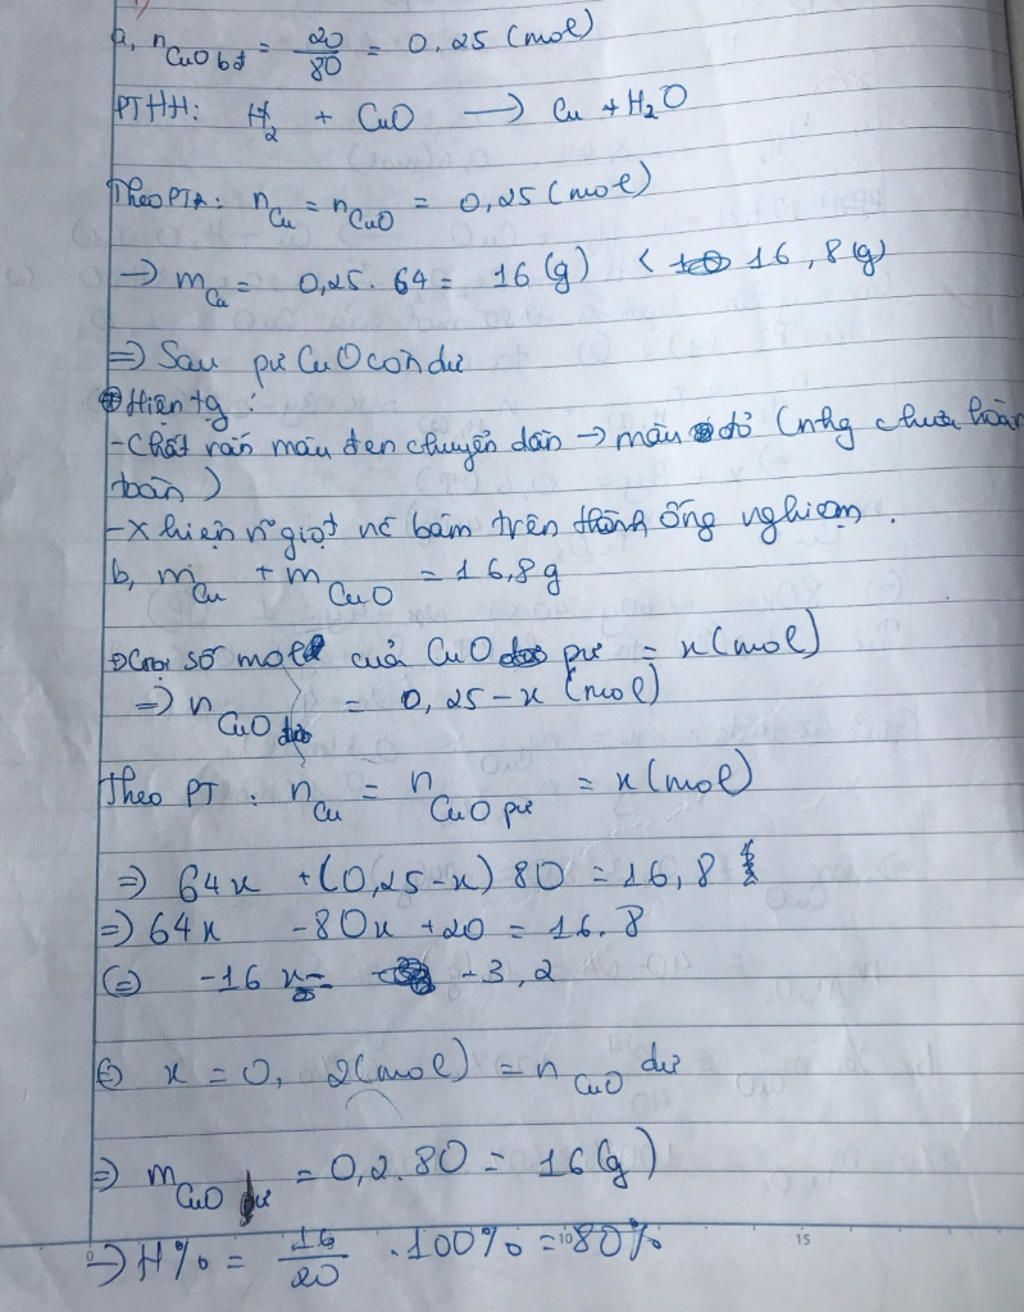 a, nCuO bđ = 20/80 = 0,25 (mol)
PTHH: H2 + CuO → Cu + H2O
Theo PT: nCu = nCuO = 0,25 (mol)
→ mCu = 0,25. 64 = 16 (g) < 16,8 (g)
=> Sau pư CuO còn dư
Hiện tg :
- Chất rắn màu đen chuyển dần → màu đỏ (nhg chưa hoàn
toàn)
- X hiện n~ giọt nc bám trên thành ống nghiệm.
b, mCu + mCuO = 16,8g
Gọi số mol của CuO pư = x (mol)
=> nCuO dư = 0,25 - x (mol)
Theo PT : nCu = nCuO pư = x (mol)
=> 64x + (0,25-x) 80 = 16,8
=> 64x - 80x + 20 = 16.8
(=) -16x = -3,2
x = 0,2 (mol) = nCuO dư
=> mCuO ư = 0,2.80 = 16 (g)
=> H% = 16/20 .100% = 80%
10 15